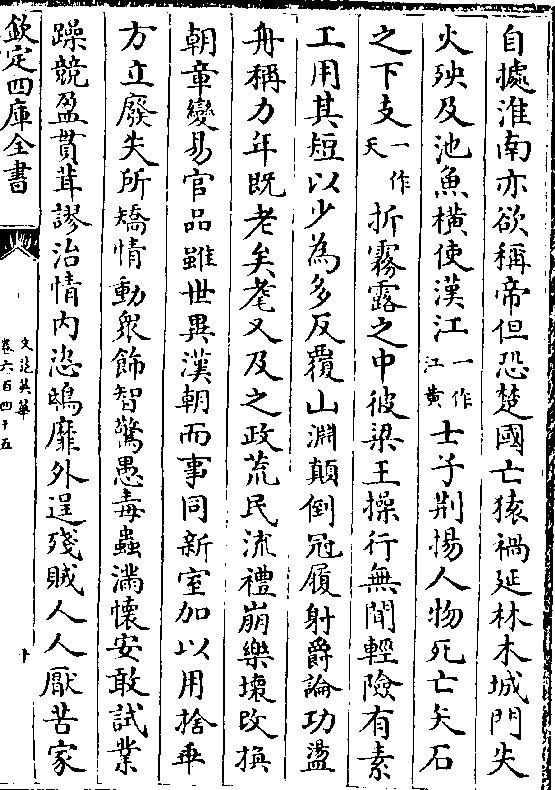 自據淮南亦欲稱帝但恐楚國亡猿禍延林木城門失
火殃及池魚橫使漢江一作江黄士子荆揚人物死亡矢石
之下支一作天折霧露之中彼梁王操行無聞輕險有素
工用其短以少為多反覆山淵顛倒冠履射爵論功盪
舟稱力年既老矣耄又及之政荒民流禮崩樂壞改換
朝章變易官品雖世異漢朝而事同新室加以用捨乖
方立廢失所矯情動衆飾智驚愚毒蟲滿懷安敢試業
躁競盈貫茸謬治情内恣鴟靡外逞殘賊人人厭苦家
欽定四庫全書
文苑英華
卷六百四十五